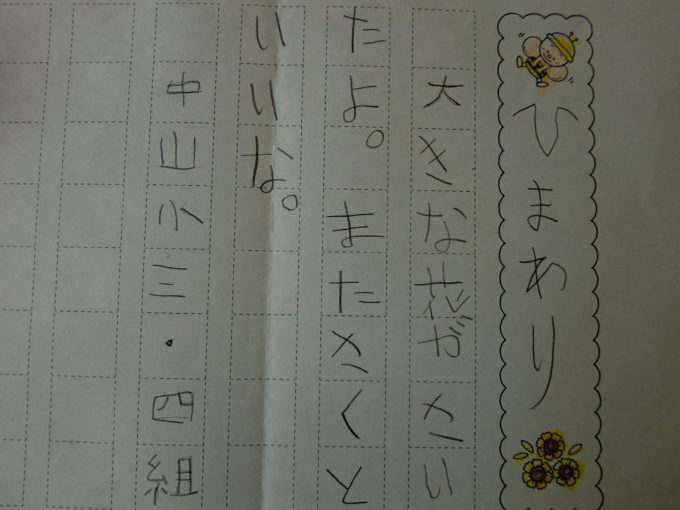 ひまわり
大きな花がさい
たよ。またさくと
いいな。
中山小三・四組